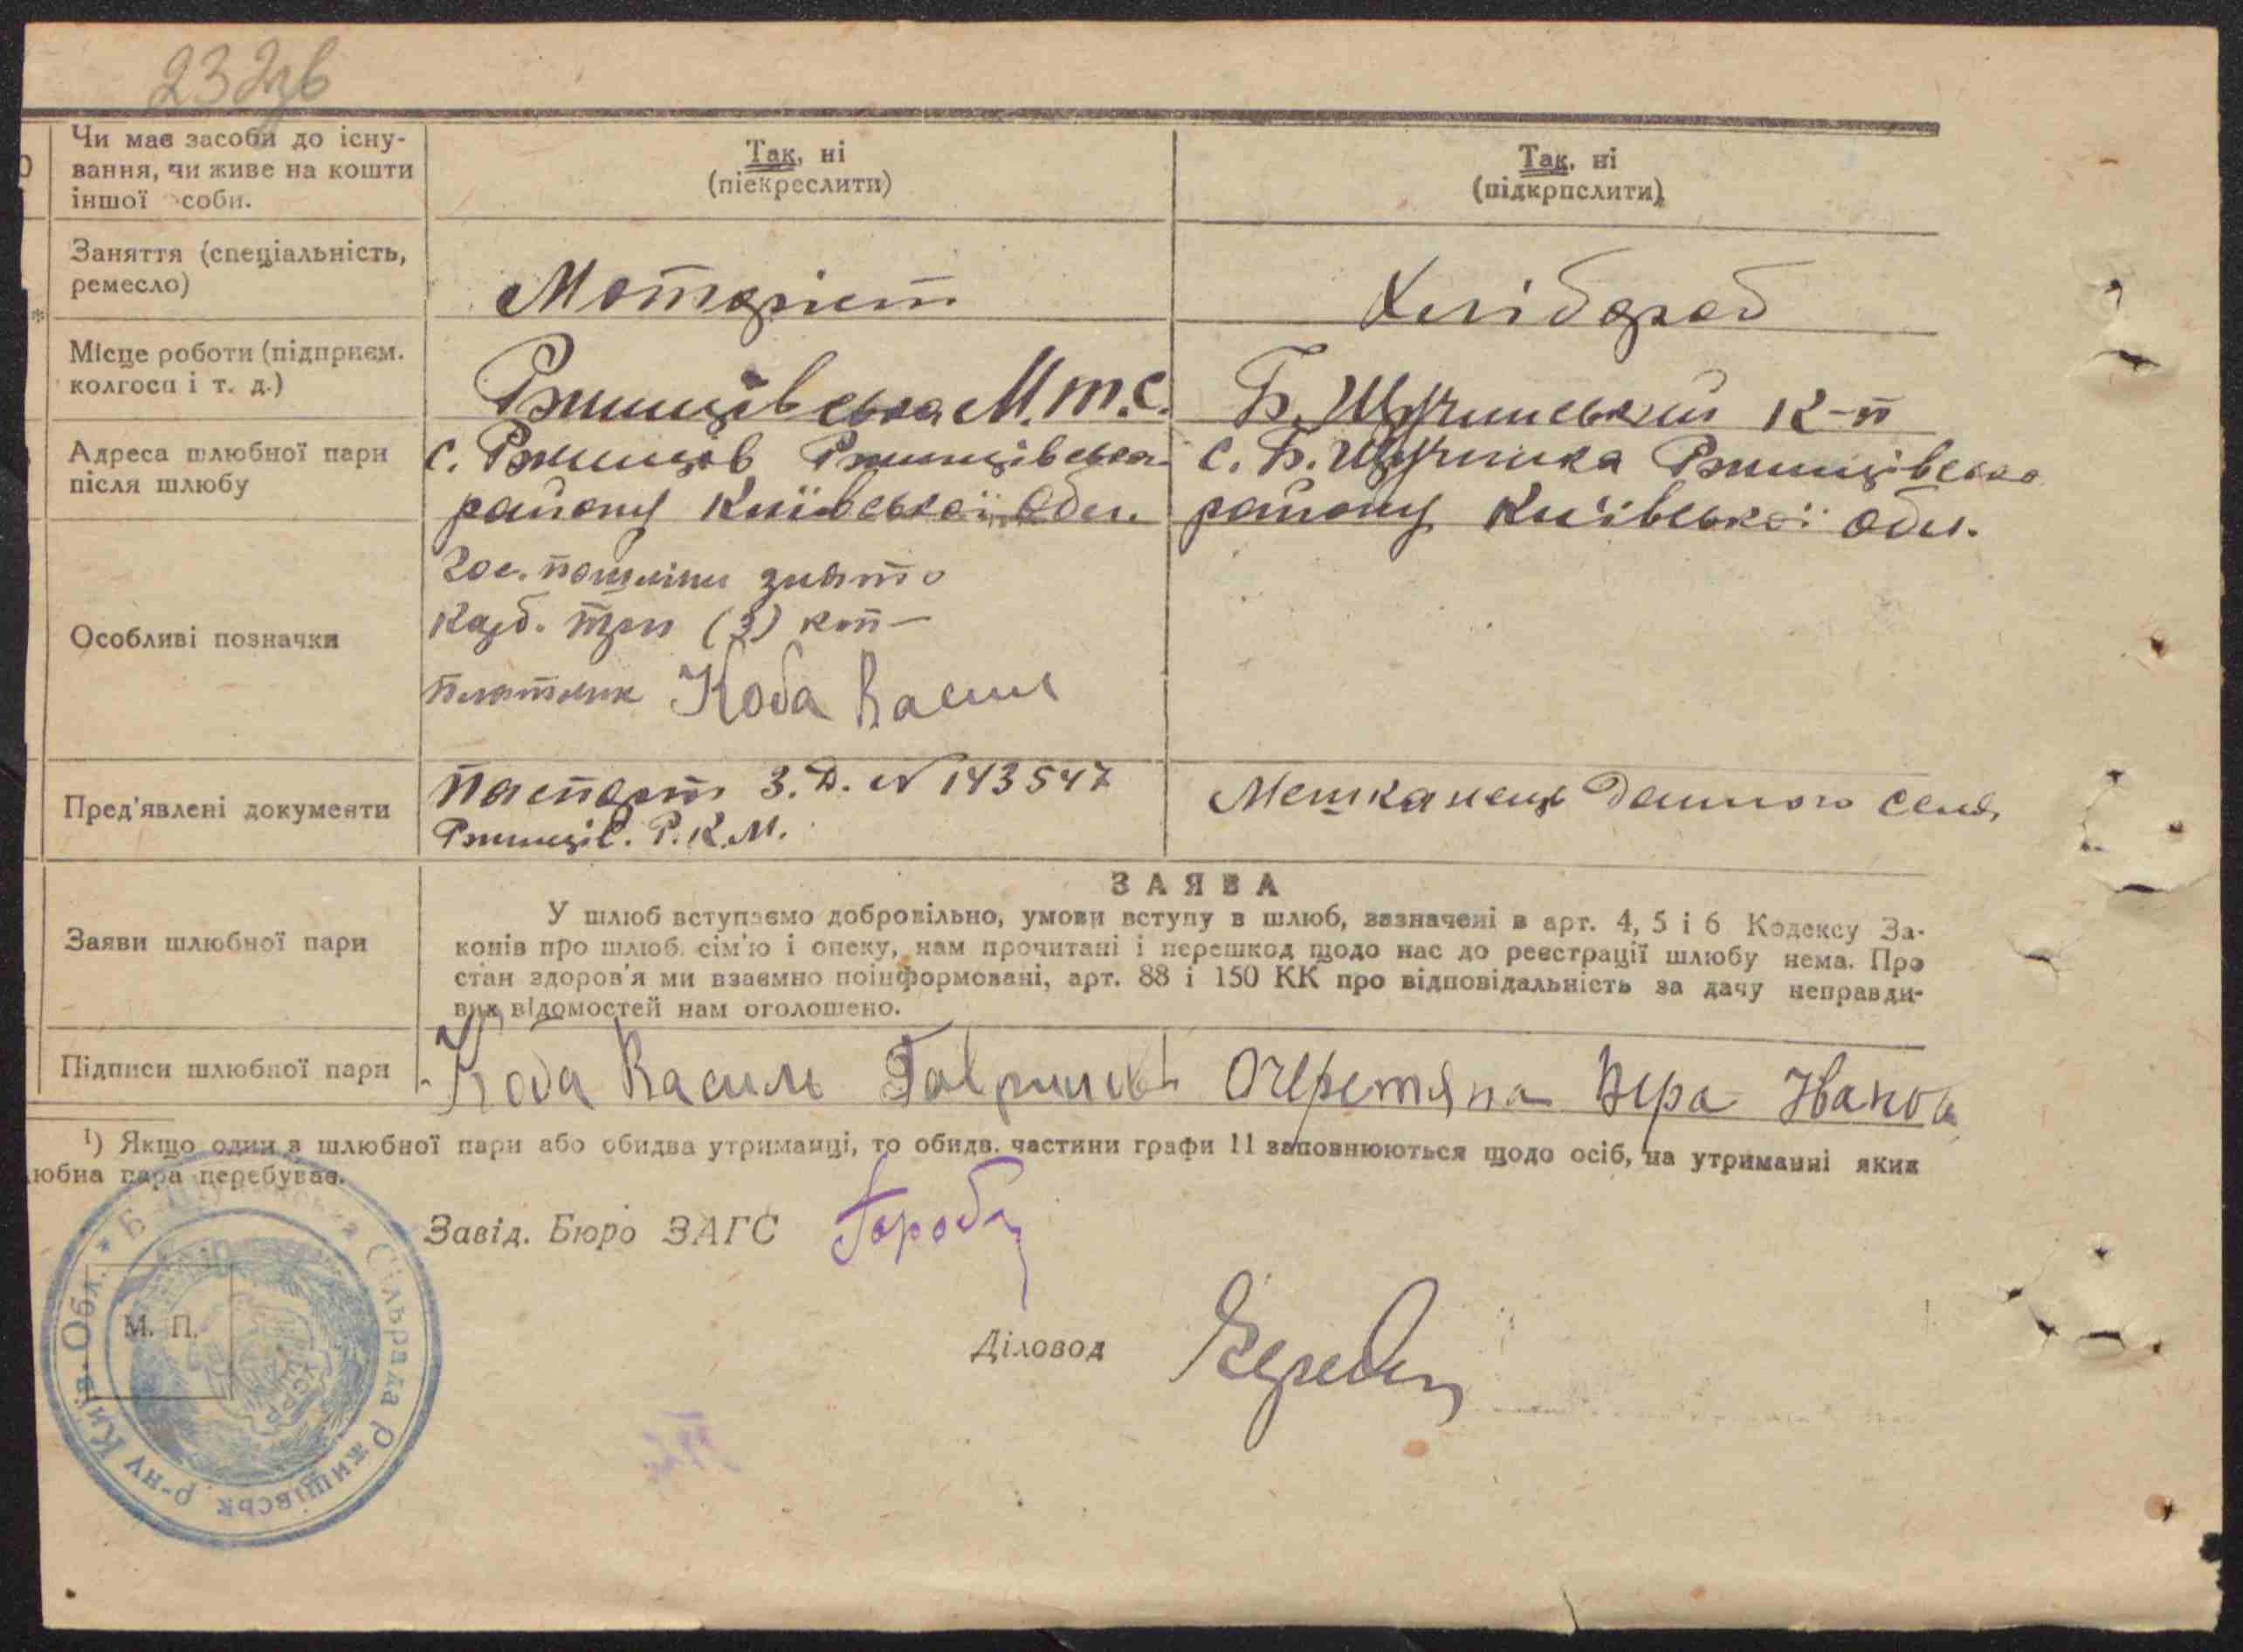 232зв
Чи має засоби до існу-
вання, чи живе на кошти
іншої особи.
Так, ні
(піекреслити)
Так, ні
(підкрпслити)
Заняття (спеціальність,
ремесло)
Моторіст
Хлібороб
Місце роботи (підприєм.
колгосп і т. д.)
Ржищівська М.т.с.
Б. Щучинський к-п
Адреса шлюбної пари
після шлюбу
с. Ржищов Ржищівсько
району Київської обл.
с. Б. Щучинка Ржищівсько
району Київської обл.
Особливі позначки
Гос. пошліни знято
карб. три (3) коп —
платник Коба Василь
Пред'явлені документи
Паспорт З.Д. N 143547
Ржищів. Р.К.М.
Мешканець данного села
Заяви шлюбної пари
ЗАЯВА
У шлюб вступаємо добровільно, умови вступу в шлюб, зазначені в арт. 4, 5 і 6 Кодексу За-
конів про шлюб. сім'ю і опеку, нам прочитані і перешкод щодо нас до реєстрації шлюбу нема. Про
стан здоров'я ми взаємно поінформовані, арт. 88 і 150 КК про відповідальність за дачу неправди-
вих відомостей нам оголошено.
Підписи шлюбної пари
Коба Василь Гаврилов Очеретяна Вера Иванов
¹) Якщо один з шлюбної пари або обидва утриманці, то обидв. частини графи 11 заповнюються щодо осіб, на утриманні яких
любна пара перебуває.
Завід. Бюро ЗАГС
Діловод
М. П.
Сільрада Ржищівськ. р-ну Київ. Обл. * Б
УСРР